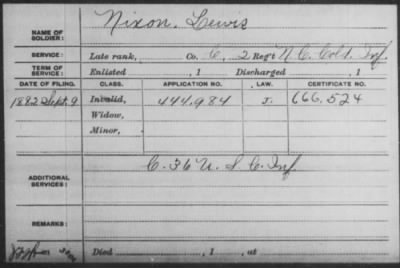 Nixon, Lewis
NAME OF SOLDIER:
SERVICE: Late rank, Co. C, 2 Reg't N.C. Cold. Inf.
TERM OF SERVICE: Enlisted , 1 Discharged , 1
DATE OF FILING. CLASS. APPLICATION NO. LAW. CERTIFICATE NO.
1882 Sept. 9 Invalid, 444,984 J. 666,524
Widow,
Minor,
C. 36 U.S.C. Inf
ADDITIONAL SERVICES:
REMARKS:
Died , 1 , at